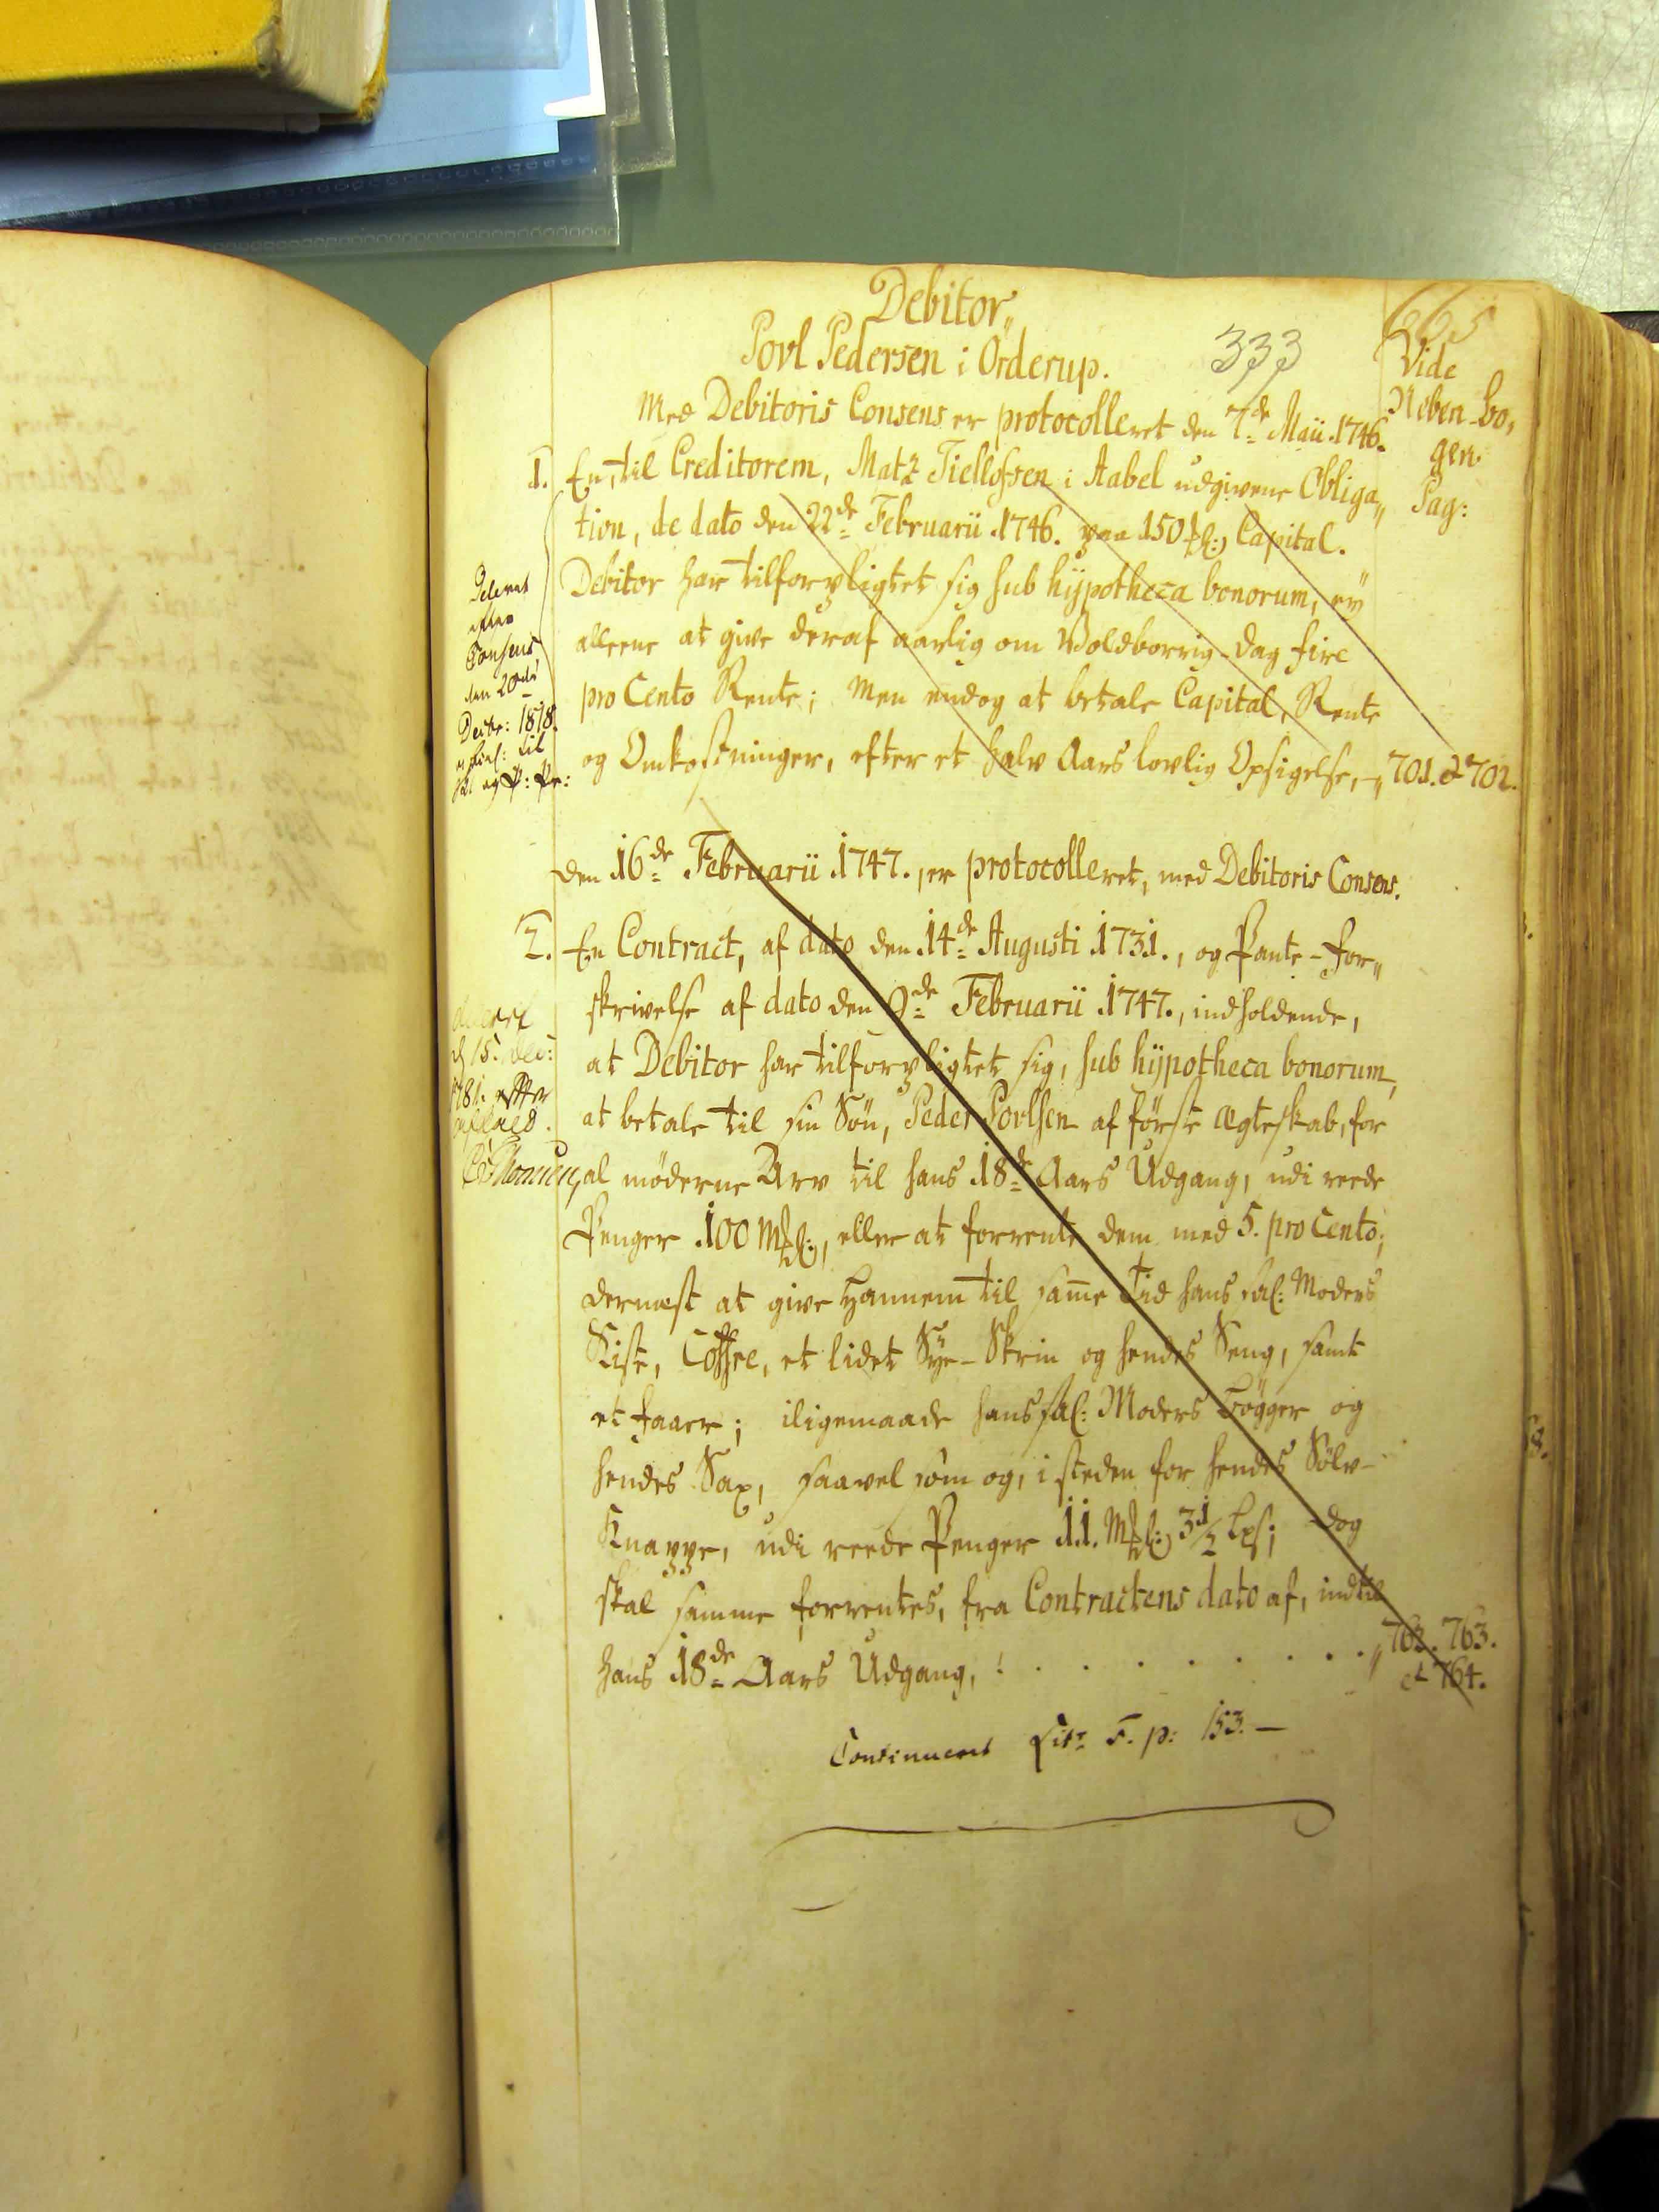 665
Debitor,,
Povl Pedersen i Örderup.
333
Vide
Neben-bo,
gen.
Pag:
Med Debitoris Consens er protocolleret den 7de Maii 1746.
1. En, til Creditorem, Matz Tiellofsen i Aabel udgivene Obliga,,
tion, de dato den 22de Februarii 1746. paa 150 Capital.
Debitor har tilforpligtet sig sub hÿpotheca bonorum, eÿ
alleene at give deraf aarlig om Woldborrig-Dag fire
pro Cento Rente; Men endog at betale Capital, Rente
og Omkostninger, efter et halv Aars lovlig Opsigelse, 701. et 702.
Deleret
efter
Consens
den 20de
Decbr: 1818.
til
Den 16de Februarii 1747., er protocolleret, med Debitoris Consens.
2. En Contract, af dato den 14de Augusti 1731., og Pante-for,,
skrivelse af dato den 9de Februarii 1747., indholdende,
at Debitor har tilforpligtet sig, sub hÿpotheca bonorum,
at betale til sin Sön, Peder Povlsen af förste Ægteskab, for
al möderne Arv til hans 18de Aars Udgang, udi reede
Penger 100, eller at forrente dem med 5. pro Cento;
dernæst at give Hannem til same Tid hans sal: Moders
Kiste, Coffre, et lidet Sÿe-Skrin og hendes Seng, samt
et faaer; iligemaade hans sal: Moders Bögger og
hendes Sax, saavel som og, i steden for hendes Sölv-
Knappe, udi reede Penger 11. 3 1/2 Lps; dog
skal samme forrentes, fra Contractens dato af, indtil
hans 18de Aars Udgang, : . . . . . . . . . 762. 763.
et 764.
d 15. dec:
1781. efter
Continueret Litr. F. p: 153. —